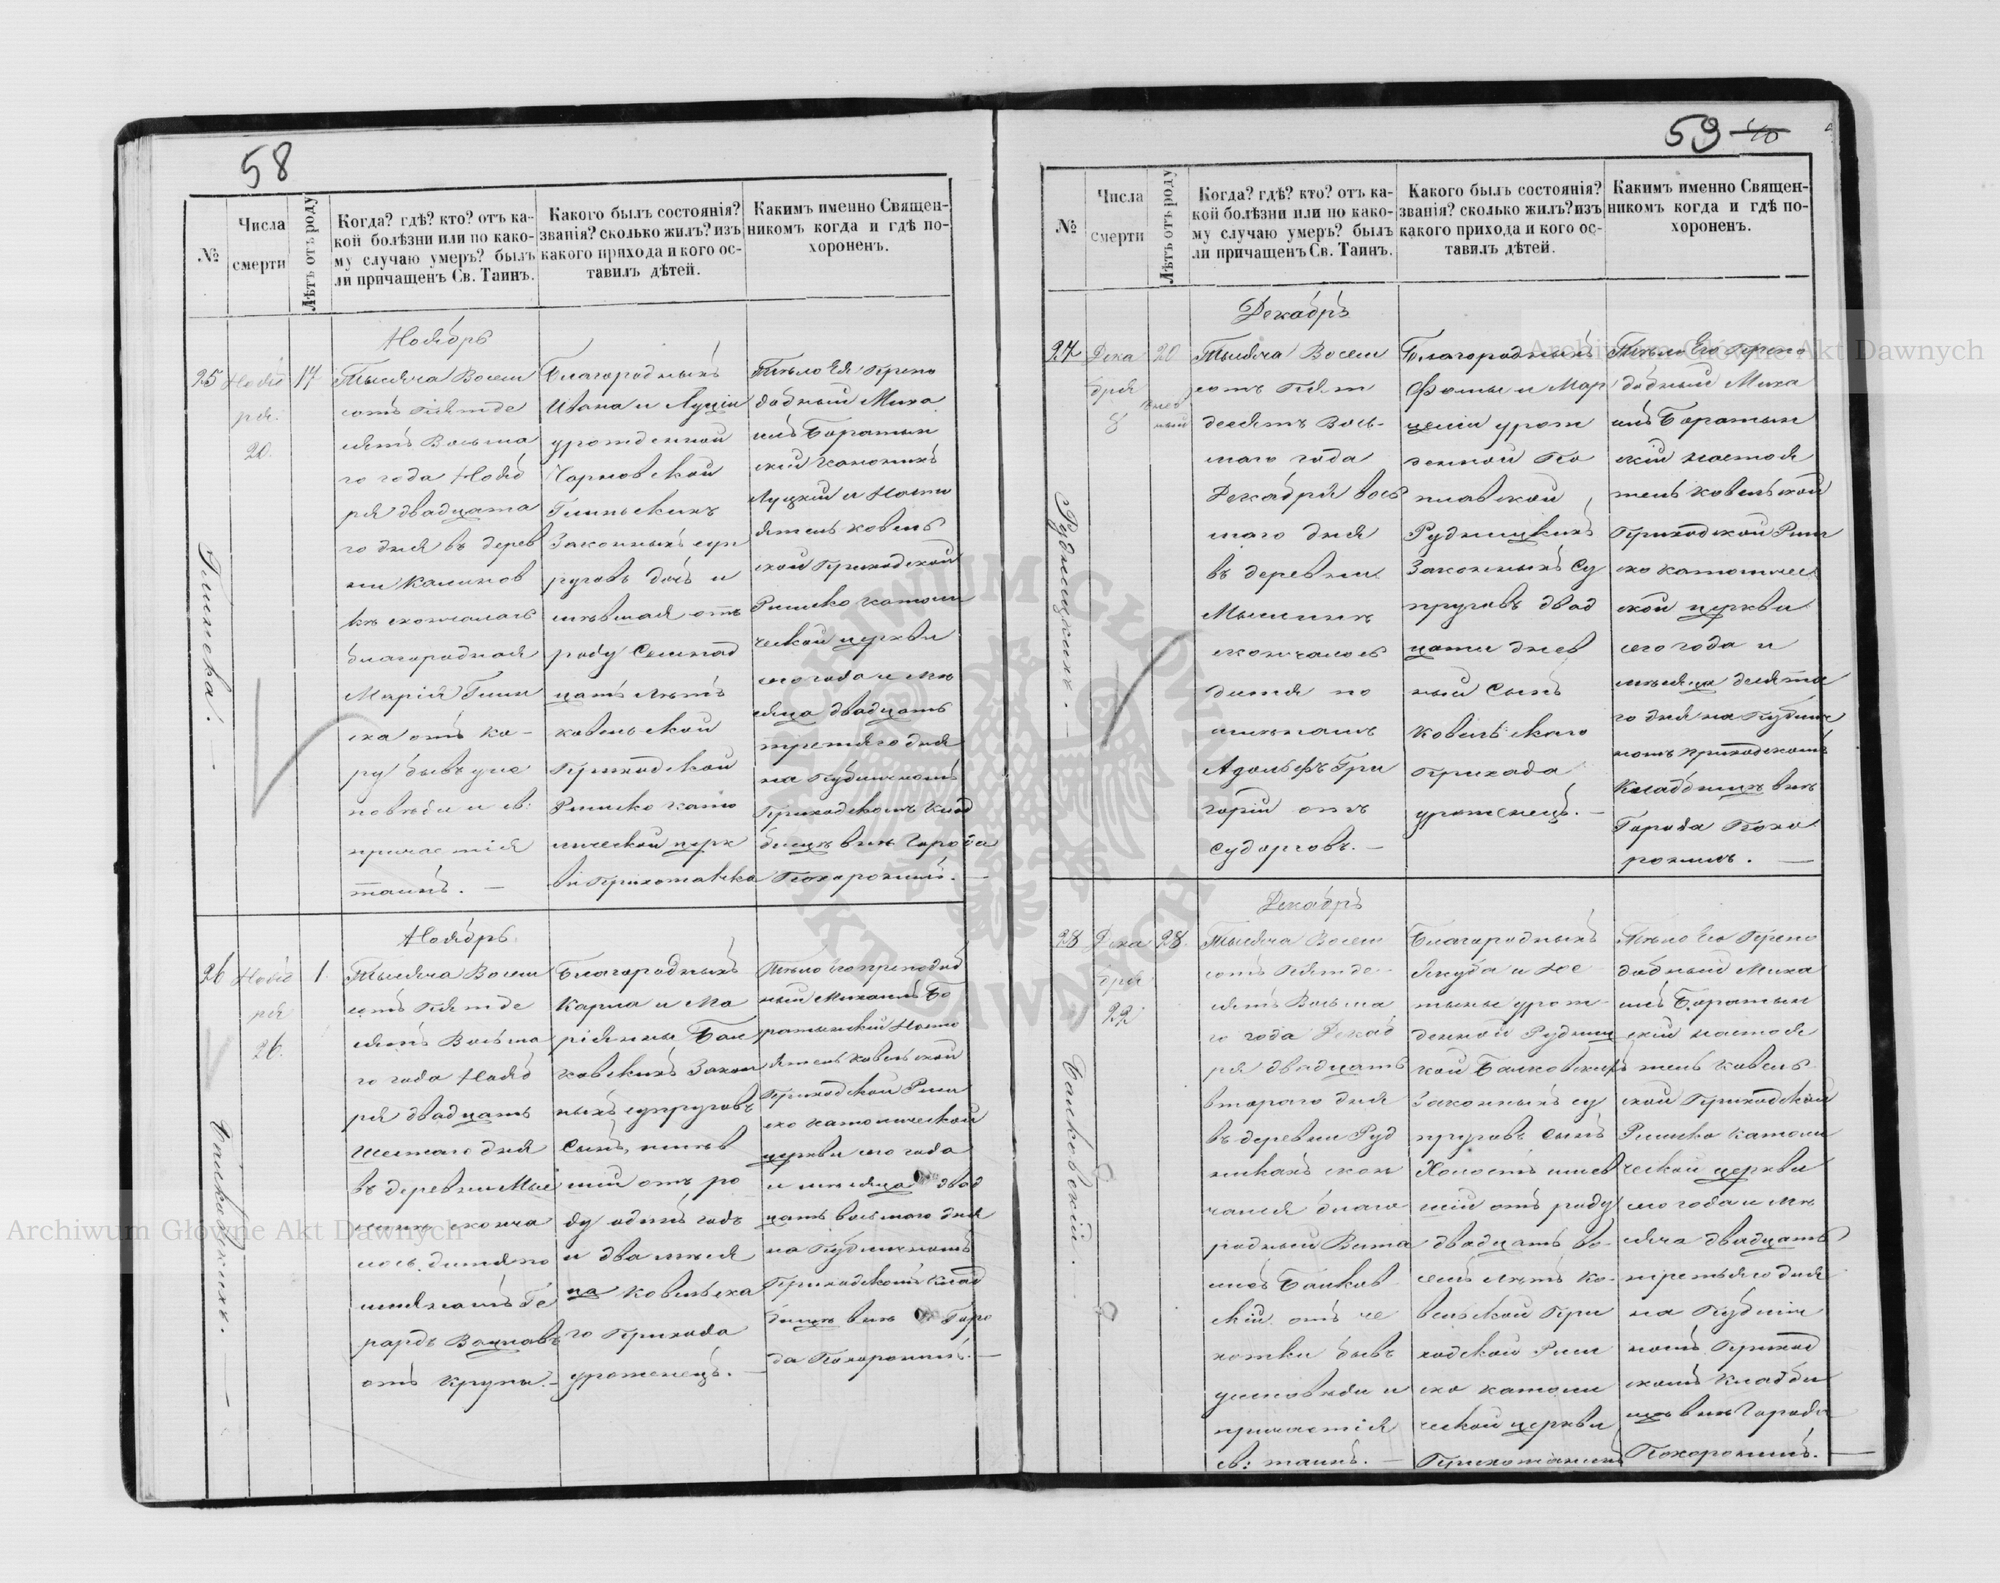 58
№
Числа
смерти
Лѣтъ отъ роду
Когда? гдѣ? кто? отъ ка-
кой болѣзни или по како-
му случаю умеръ? былъ
ли причащенъ Св. Таинъ.
Какого былъ состоянія?
званія? сколько жилъ? изъ
какого прихода и кого ос-
тавилъ дѣтей.
Какимъ именно Священ-
никомъ когда и гдѣ по-
хороненъ.
25
Нояб
ря.
20.
17
Ноябрь
Тысяча Восем
сотъ Пятде
сятъ Восьма
го года Нояб
ря двадцата
го дня въ дерев
ни Калинов
къ скончалась
благородная
Марія
ска отъ ко-
ри бывъ испо
повѣди и св:
причастія
таинъ. —
Благородныхъ
Ивана и Луціи
урожденной
Чарновской
Законныхъ суп
руговъ дочь и
мѣвшая отъ
роду Семнад
цать лѣтъ
Ковельской
Приходской
Римско като
лической церк
ви Прихожанка
Тѣло Ея Препо
добный Миха
илъ Боратын
скій Каноникъ
Луцкій и Насто
ятель Ковель
ской Приходской
Римско Католи
ческой церкви
сего года и мѣ
сяца двадцать
третяго дня
на Публичномъ
Приходскомъ Клад
бищѣ внѣ Города
Похоронилъ. —
26
Нояб
ря
26.
1
Балковскихъ. —
Ноябрь.
Тысяча Восем
сотъ Пятде
сятъ Восьма
го года Нояб
ря двадцать
шестаго дня
въ деревни Мыс
сконча
лось дитя по
именемъ Ге
рардъ Вацлавъ
отъ крупы. —
Благородныхъ
Карла и Ма
ріянны Бал
ковскихъ Закон
ныхъ супруговъ
Сынъ, имѣв
шій отъ ро
ду одинъ годъ
и два мѣся
ца Ковельска
го Прихода
уроженецъ. —
Тѣло его преподоб
ный Михаилъ Бо
ратынскій Насто
ятель Ковельской
Приходской Рим
ско католической
церкви сего года
и мѣсяца двад
цать восьмаго дня
на Публичномъ
Приходскомъ Клад
бищѣ внѣ Горо
да Похоронилъ. —
59
№
Числа
смерти
Лѣтъ отъ роду
Когда? гдѣ? кто? отъ ка-
кой болѣзни или по како-
му случаю умеръ? былъ
ли причащенъ Св. Таинъ.
Какого былъ состоянія?
званія? сколько жилъ? изъ
какого прихода и кого ос-
тавилъ дѣтей.
Какимъ именно Священ-
никомъ когда и гдѣ по-
хороненъ.
27
Дека
бря
8
20
днев
ный
Рудницкихъ. —
Декабрь
Тысяча Восем
сотъ Пят
десятъ Вось-
маго года
Декабря вось
маго дня
въ деревни
скончалось
дитя по
имѣнамъ
Адольфъ Гри
горій отъ
судорговъ. —
Благородныхъ
Фомы и Мар
целіи урож
денной По
плавской
Рудницкихъ
Законныхъ Су
пруговъ двад
цати днев
ный Сынъ
Ковельскаго
Прихода
уроженецъ. —
Тѣло Его Препо
добный Миха
илъ Боратын
скій настоя
тель Ковельской
Приходской Рим
ско католичес
кой церкви
сего года и
мѣсяца девята
го дня на Публич
номъ Приходскомъ
Кладбищѣ внѣ
Города Похо
ронилъ. —
28
Дека
бря
22
28.
Балковскій. —
Декабрь
Тысяча Восем
сотъ Пятде-
сятъ Восьма
го года Декаб
ря двадцать
втораго дня
въ деревни Руд
никахъ скон
чался благо
родный Вита
лисъ Балков-
скій отъ че
хотки бывъ
у исповѣди и
причастія
св: таинъ. —
Благородныхъ
Якуба и Ю
стыны урож-
денной Рудниц
кой Балковскихъ
Законныхъ су
пруговъ сынъ
Холостъ имѣв
шій отъ роду
двадцать во-
семь лѣтъ Ко-
вельской При
ходской Рим
ско католи
ческой церкви
Прихожанинъ
Тѣло Его Препо
добный Миха
илъ Боратын
скій настоя
тель Ковель-
ской Приходской
Римско Католи
ческой церкви
сего года и мѣ
сяца двадцать
третьяго дня
на Публич
номъ Приход
скомъ Кладби
щѣ внѣ Города
Похоронилъ. —
Archiwum Główne Akt Dawnych
Archiwum Główne Akt Dawnych
ARCHIWUM GŁÓWNE AKT DAWNYCH